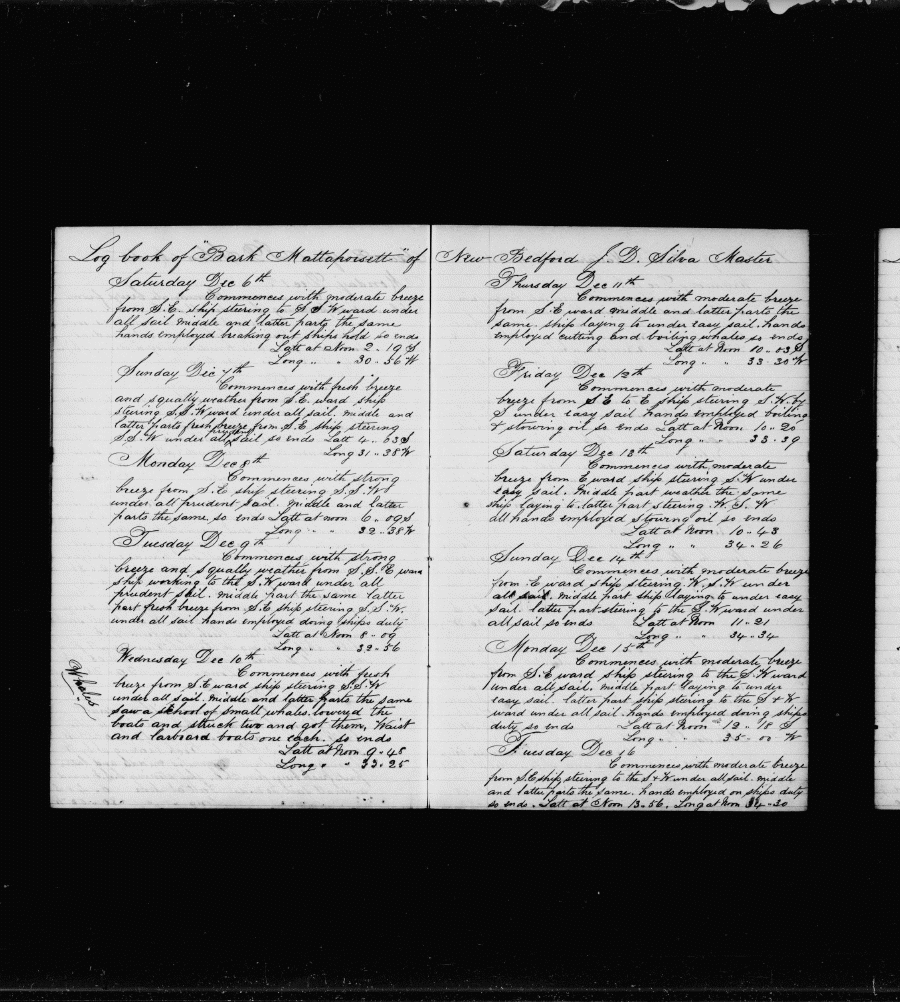 Log book of "Bark Mattapoisett" of
Saturday Dec 6th
Commences with moderate breeze
from S.E. ship steering to S S W ward under
all sail middle and latter parts the same
hands employed breaking out ships hold so ends
Latt at Noon 2 .. 19 S
Long " " 30 .. 56 W
Sunday Dec 7th
Commences with fresh breeze
and squally weather from S.E. ward ship
steering S.S.W ward under all sail. middle and
latter parts fresh breeze from S.E ship steering
S.S.W under all prudent sail so ends Latt 4 .. 03 S
Long 31 .. 38 W
Monday Dec 8th
Commences with strong
breeze from S.E ship steering S.S.W
under all prudent sail. middle and latter
parts the same, so ends Latt at noon 6 .. 09 S
Long " " 32 .. 38 W
Tuesday Dec 9th
Commences with strong
breeze and squally weather from S.S.E ward
ship working to the S.W ward under all
prudent sail. middle part the same latter
part fresh breeze from S.E ship steering S.S.W.
under all sail hands employed doing ships duty
Latt at Noon 8 .. 09
Long " " 32 .. 56
Wednesday Dec 10th
Commences with fresh
breeze from S.E ward ship steering S.S.W
Whales
under all sail. middle and latter parts the same
saw a school of small whales lowered the
boats and struck two and got them, Waist
and larboard boats one each. so ends
Latt at Noon 9 .. 48
Long " " 33 .. 25
New Bedford J. D. Silva Master
Thursday Dec 11th
Commences with moderate breeze
from S.E ward middle and latter parts the
same. ship laying to under easy sail. hands
employed cutting and boiling whales so ends
Latt at Noon 10 .. 03 S
Long " " 33 .. 30 W
Friday Dec 12th
Commences with moderate
breeze from S E to E ship steering S.W. by
S under easy sail hands employed boiling
& stowing oil so ends Latt at Noon 10 .. 20
Long " " 33 .. 39
Saturday Dec 13th
Commences with moderate
breeze from E ward ship steering S.W under
easy sail. Middle part weather the same
ship laying to. latter part steering W.S.W
all hands employed stowing oil so ends
Latt at Noon 10 .. 43
Long " " 34 .. 26
Sunday Dec 14th
Commences with moderate breeze
from E ward ship steering W.S.W under
all sail. middle part ship laying to under easy
sail. latter part steering to the S.W ward under
all sail so ends Latt at Noon 11 .. 21
Long " " 34 .. 34
Monday Dec 15th
Commences with moderate breeze
from S.E ward ship steering to the S.W ward
under all sail. middle part laying to under
easy sail. latter part ship steering to the S & W
ward under all sail. hands employed doing ships
duty so ends Latt at Noon 12 .. 18 S
Long " " 35 .. 00 W
Tuesday Dec 16
Commences with moderate breeze
from S.E ship steering to the S & W under all sail. middle
and latter parts the same. hands employed on ships duty
so ends. Latt at Noon 13 .. 56. Long at Noon 34 .. 30